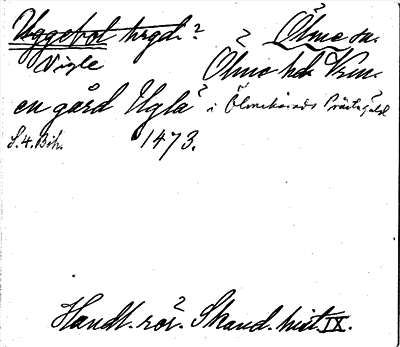 Uggebol hrgd.? Ölme sn.
Vigle Ölme hd. Vrm.
en gård Ugla i Ölmehärads Prästgäld
S. 4. Bih. 1473.
Handl. rör. Skand. hist. IX.